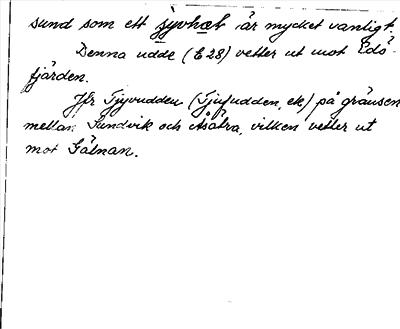 sund som ett jyvhæt är mycket vanligt.
Denna udde (E28) vetter ut mot Edö-
fjärden.
Jfr Tjyvudden (Tjuvudden, ek) på gränsen
mellan Sundvik och Åsätra, vilken vetter ut
mot Gälnan.